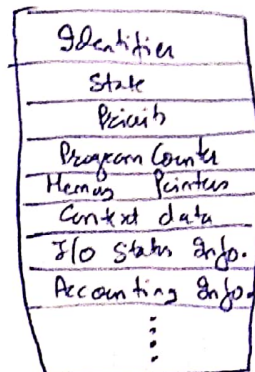 Identifier
State
Priority
Program Counter
Memory Pointers
Context data
I/O Status Info.
Accounting Info.